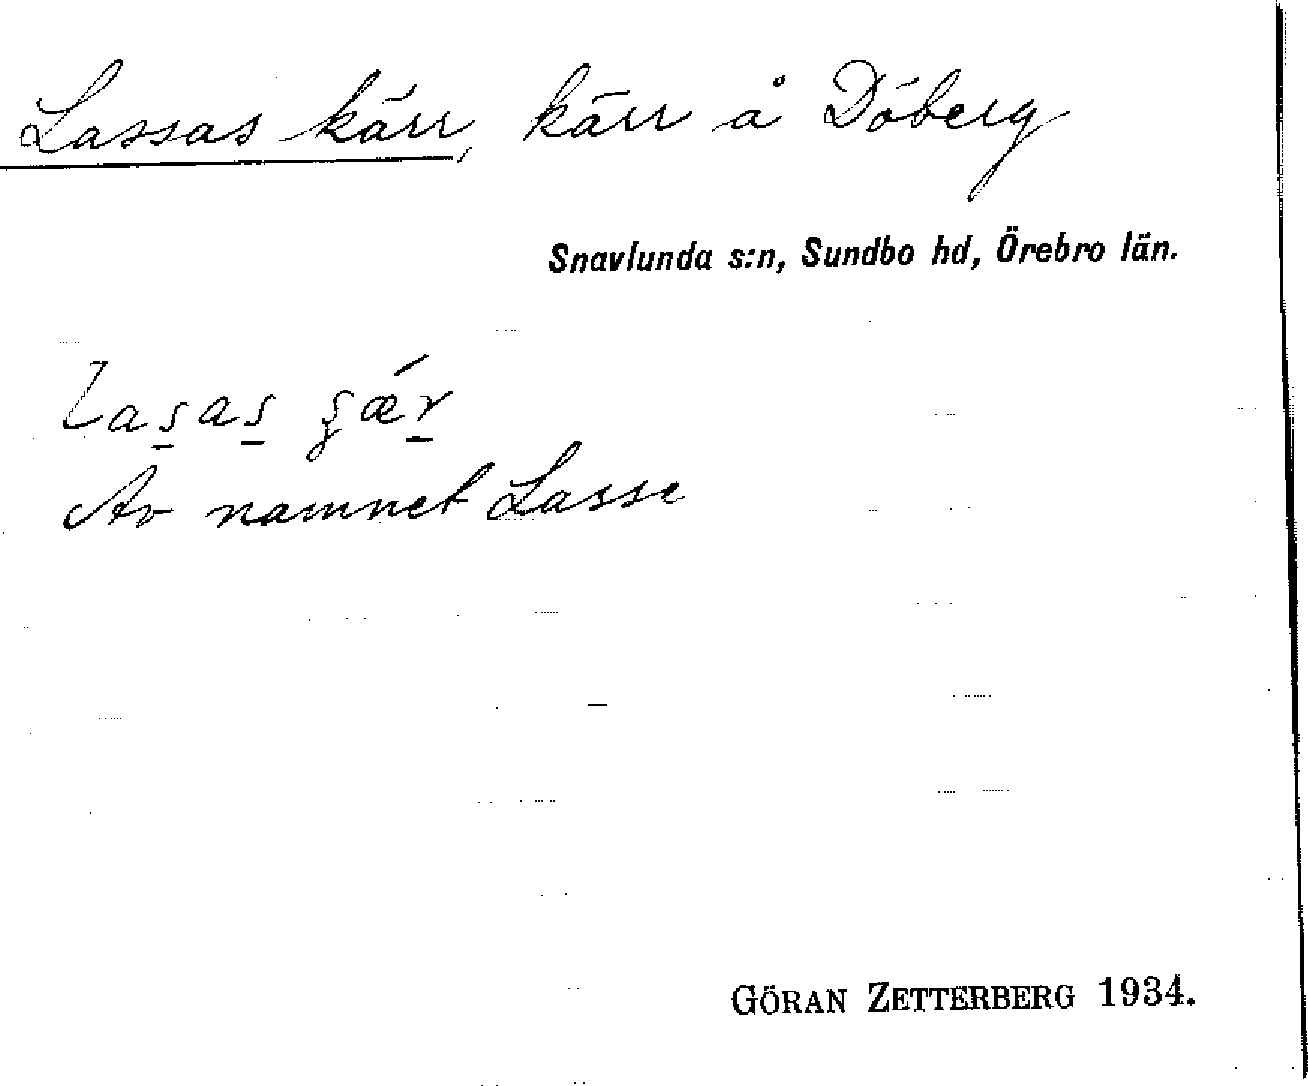 Lassas kärr, kärr å Döberg
Snavlunda s:n, Sundbo hd, Örebro län.
las̲as̲ ʂǽr̲
Av namnet Lasse
GÖRAN ZETTERBERG 1934.